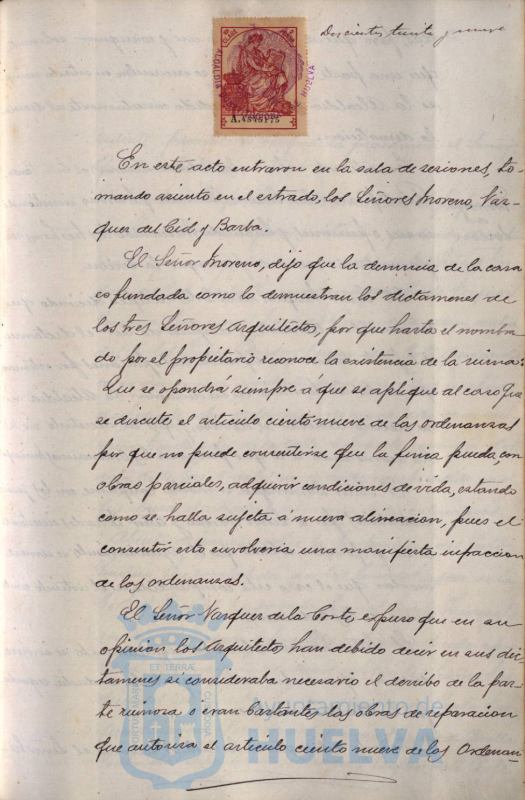 Doscientos treinta y nueve
A.4845175
ALCALDIA
HUELVA
En este acto entraron en la sala de sesiones, to-
mando asiento en el estrado, los Señores Moreno, Váz-
quez del Cid y Barba.
El Señor Moreno, dijo que la denuncia de la casa
es fundada como lo demuestran los dictamenes de
los tres Señores Arquitectos, por que hasta el nombra-
do por el propietario reconoce la existencia de la ruina:
Que se opondrá siempre á que se aplique al caso que
se discute el articulo ciento nueve de las ordenanzas
por que no puede consentirse que la finca pueda, con
obras parciales, adquirir condiciones de vida, estando
como se halla sujeta á nueva alineacion, pues el
consentir esto envolveria una manifiesta infraccion
de las ordenanzas.
El Señor Vazquez de la Corte expuso que en su
opinion los Arquitectos han debido decir en sus dic-
tamenes si consideraba necesario el derribo de la par-
te ruinosa o eran bastantes las obras de reparacion
que autoriza el articulo ciento nueve de las Ordenan-
Ayuntamiento de
HUELVA